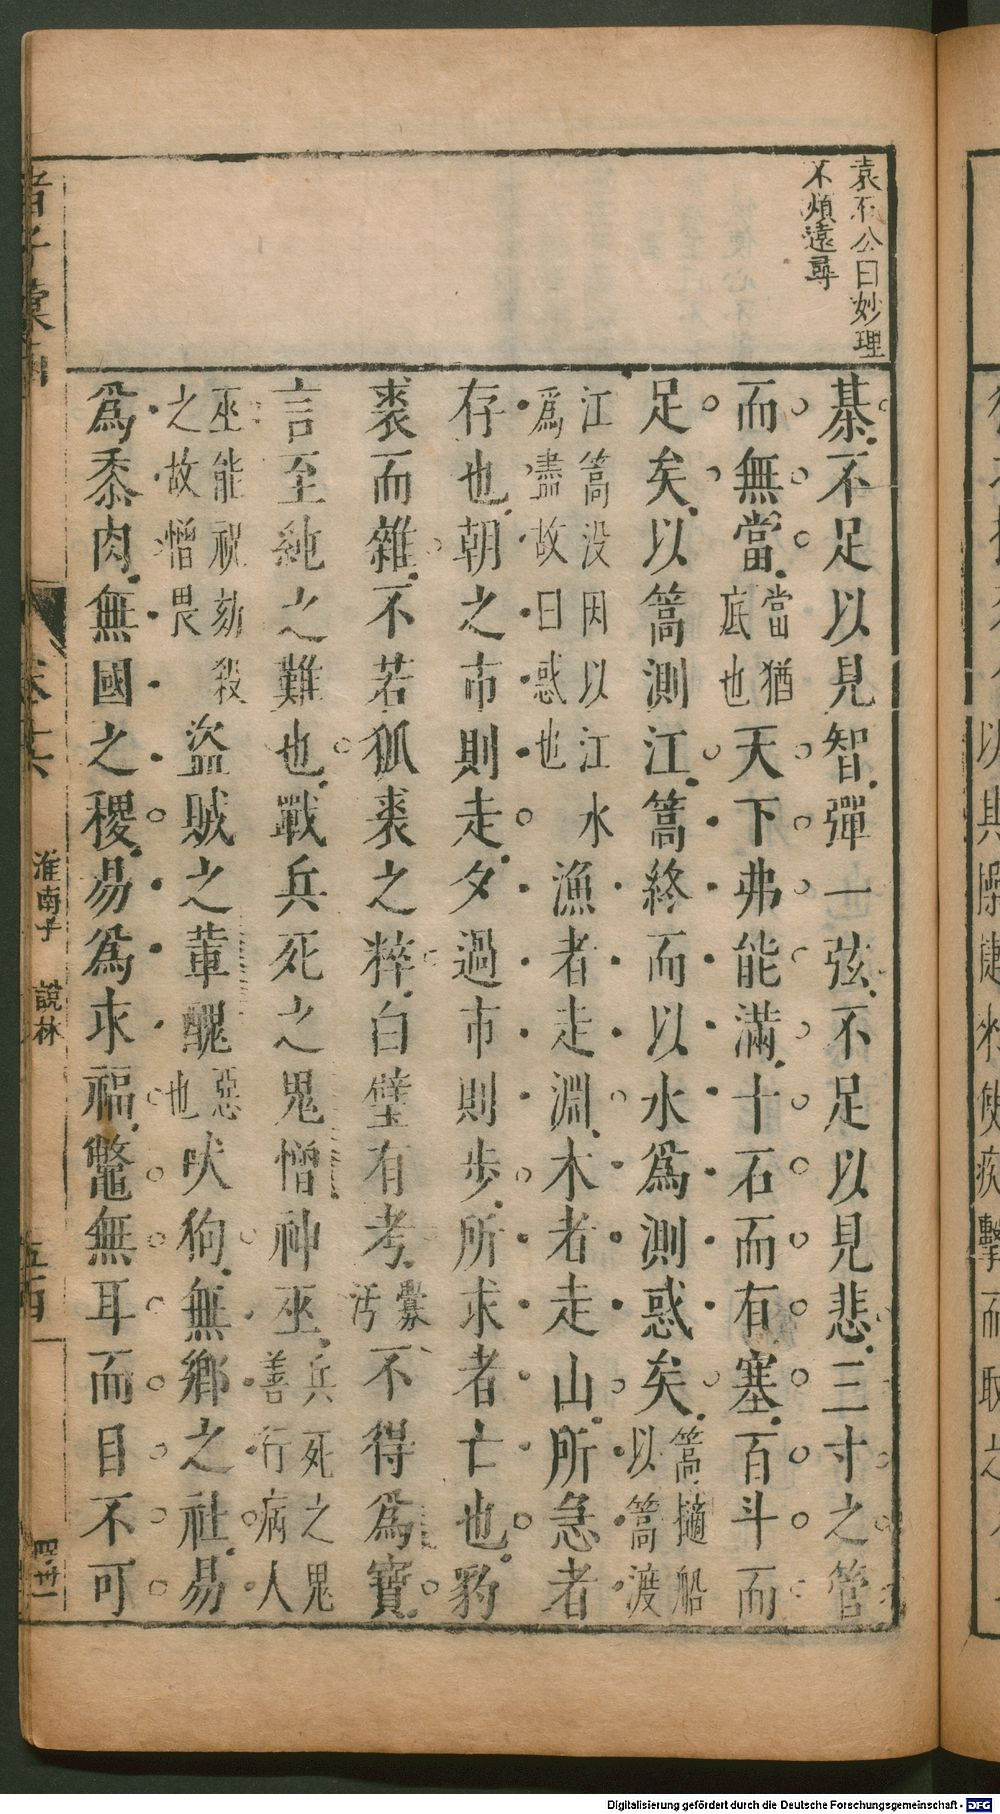 袁石公曰妙理
不煩遠尋
棊不足以見智彈一弦不足以見悲三寸之管
而無當當猶底也天下弗能滿十石而有塞百斗而
足矣以篙測江篙終而以水為測惑矣篙擿船以篙渡
江篙没因以江水為盡故曰惑也漁者走淵木者走山所急者
存也朝之市則走夕過市則步所求者亡也豹
裘而雜不若狐裘之粹白璧有考釁汚不得為寶
言至純之難也戰兵死之鬼憎神巫兵死之鬼善行病人
巫能祝劾殺之故憎畏盜賊之輩醜惡也吠狗無鄉之社易
為黍肉無國之稷易為求福鼈無耳而目不可
諸子彙函
卷十六
淮南子 說林
Digitalisierung gefördert durch die Deutsche Forschungsgemeinschaft - DFG